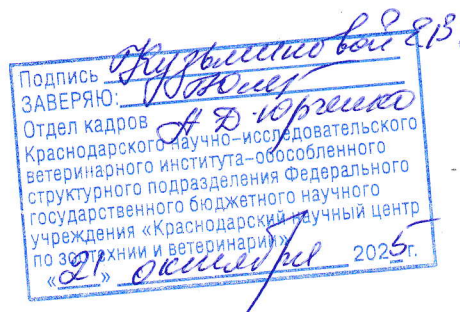 Подпись Кузьминовой Е.В.
ЗАВЕРЯЮ:
Отдел кадров Н Д Юрченко
Краснодарского научно-исследовательского
ветеринарного института-обособленного
структурного подразделения Федерального
государственного бюджетного научного
учреждения «Краснодарский научный центр
по зоотехнии и ветеринарии»
«21» октября 2025г.